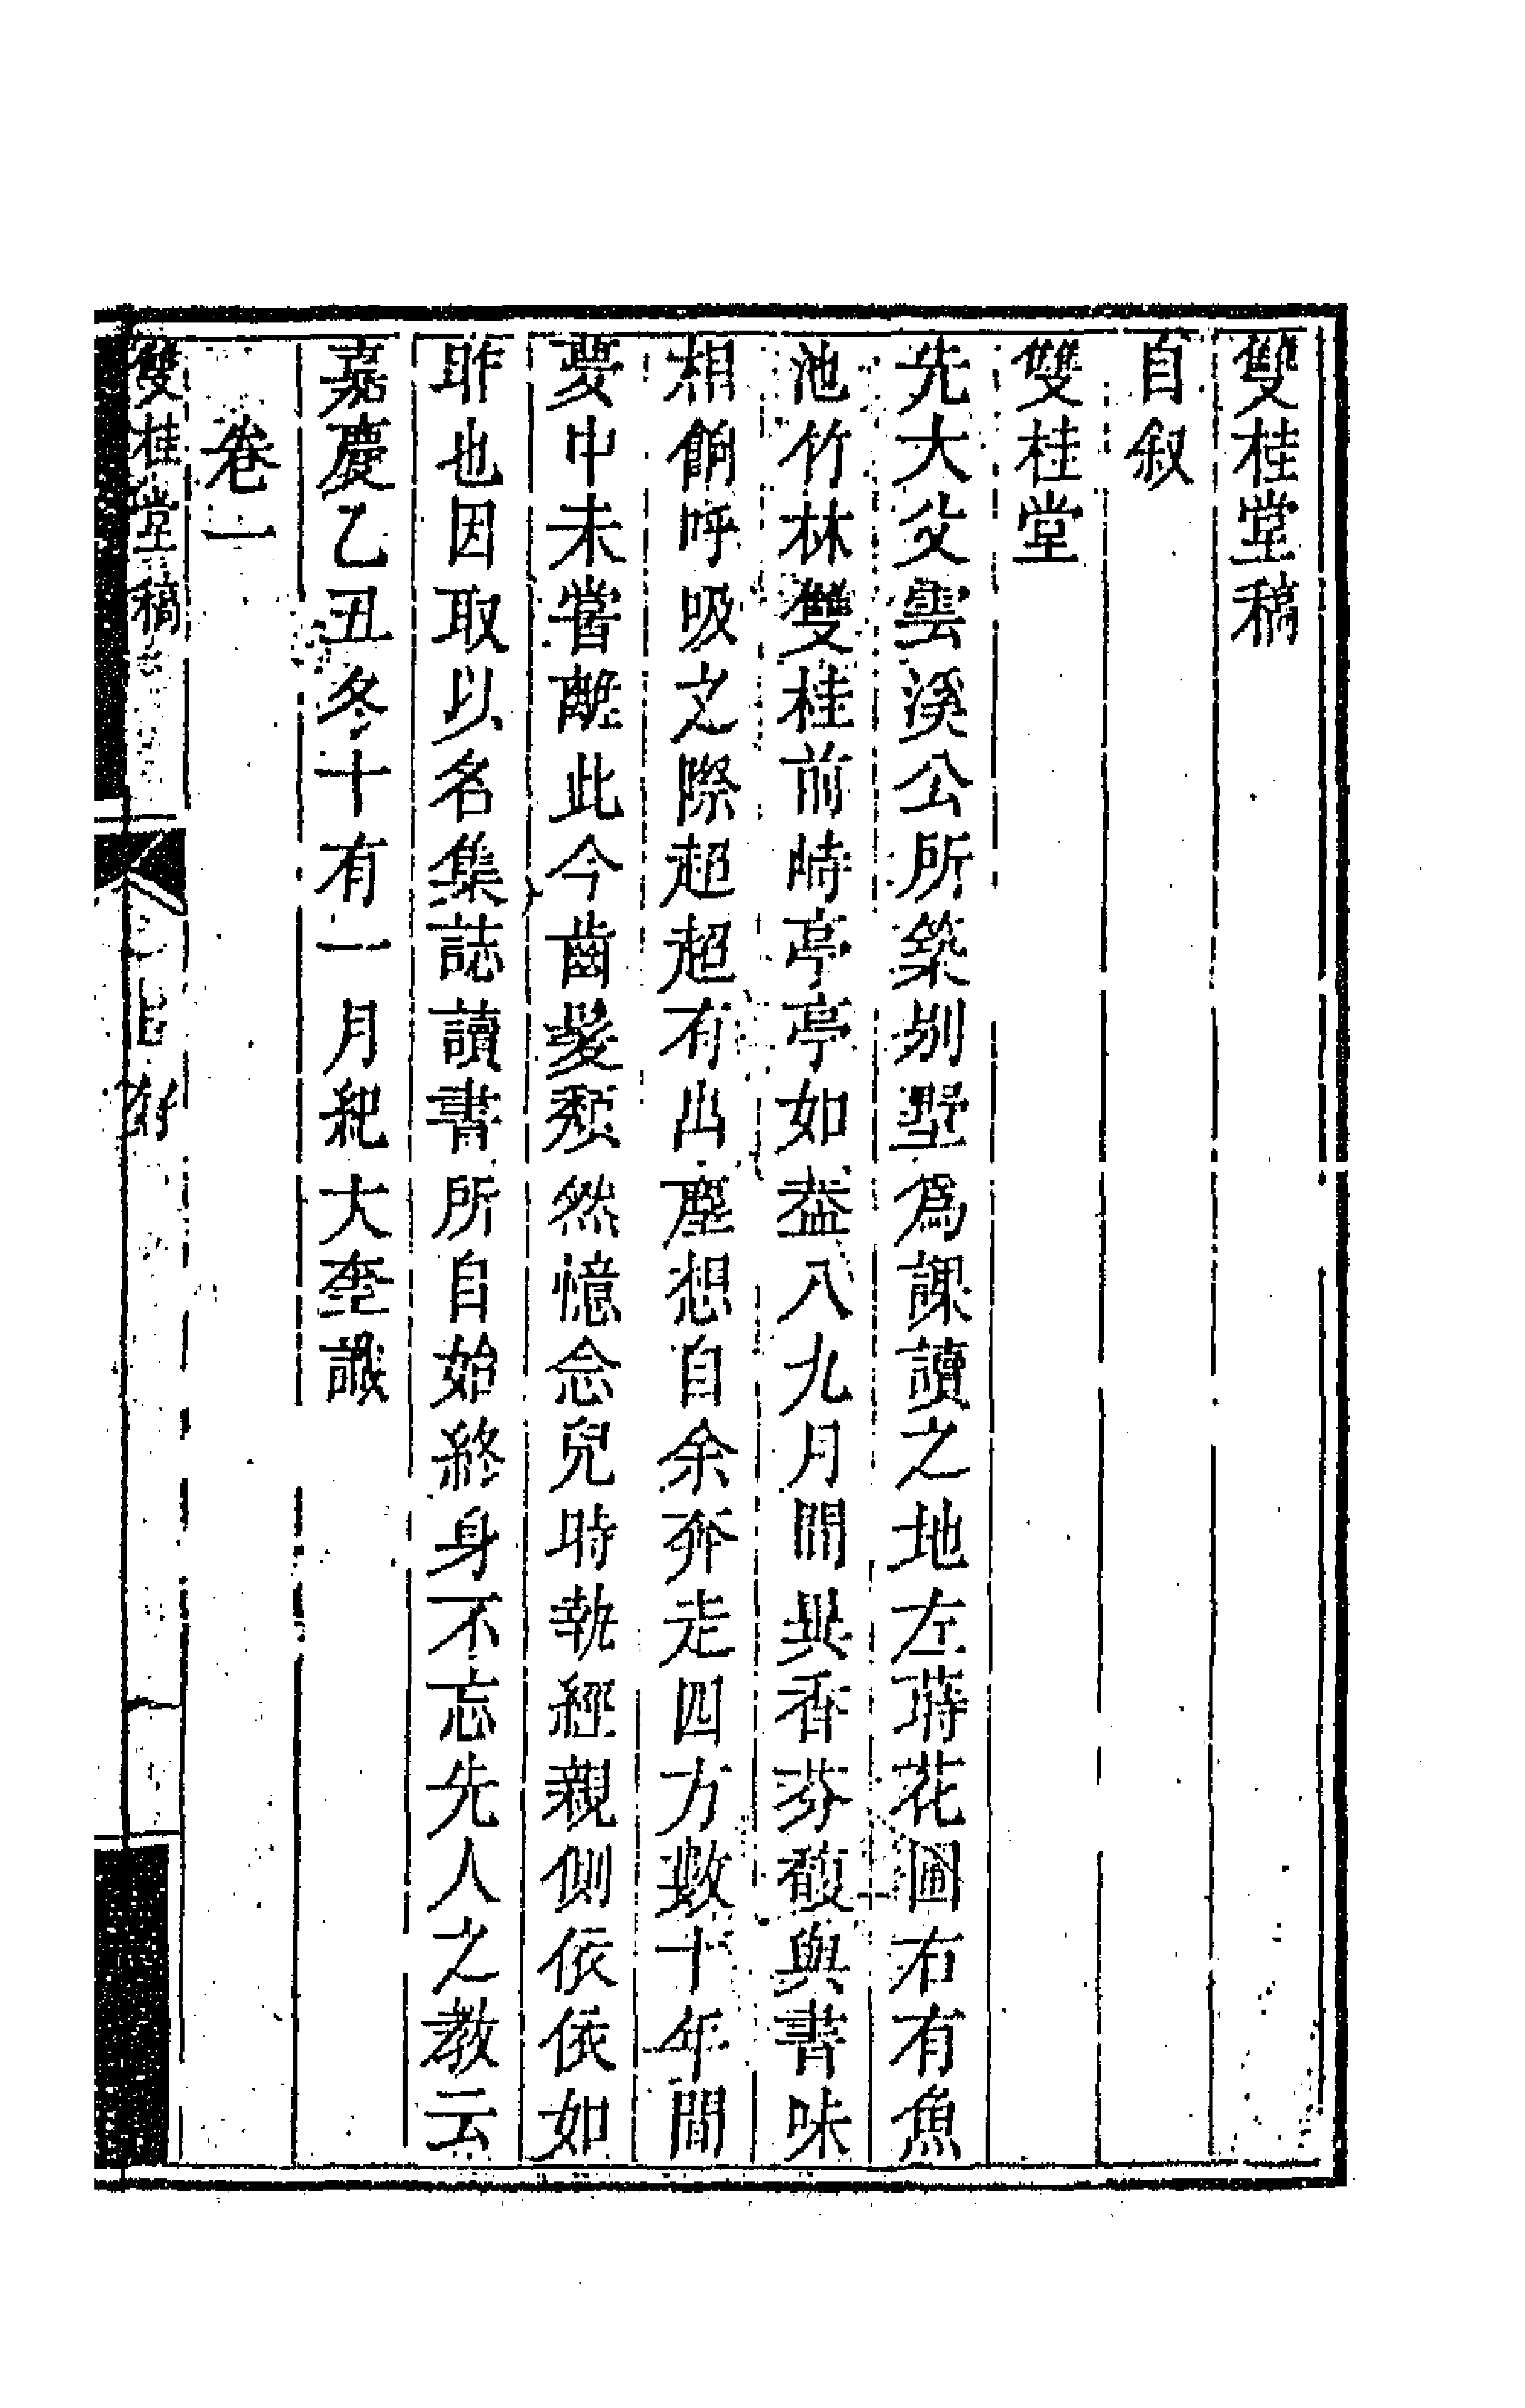 雙桂堂稿
自叙
雙桂堂
先大父雲溪公所築別墅爲課讀之地左蒔花圃右有魚
池竹林雙桂前峙亭亭如蓋八九月間異香芬馥與書味
相餉呼吸之際超超有出塵想自余奔走四方數十年間
夢中未嘗離此今齒髮頹然憶念兒時執經親側依依如
昨也因取以名集誌讀書所自始終身不忘先人之教云
嘉慶乙丑冬十有一月紀大奎識
卷一
雙桂堂稿